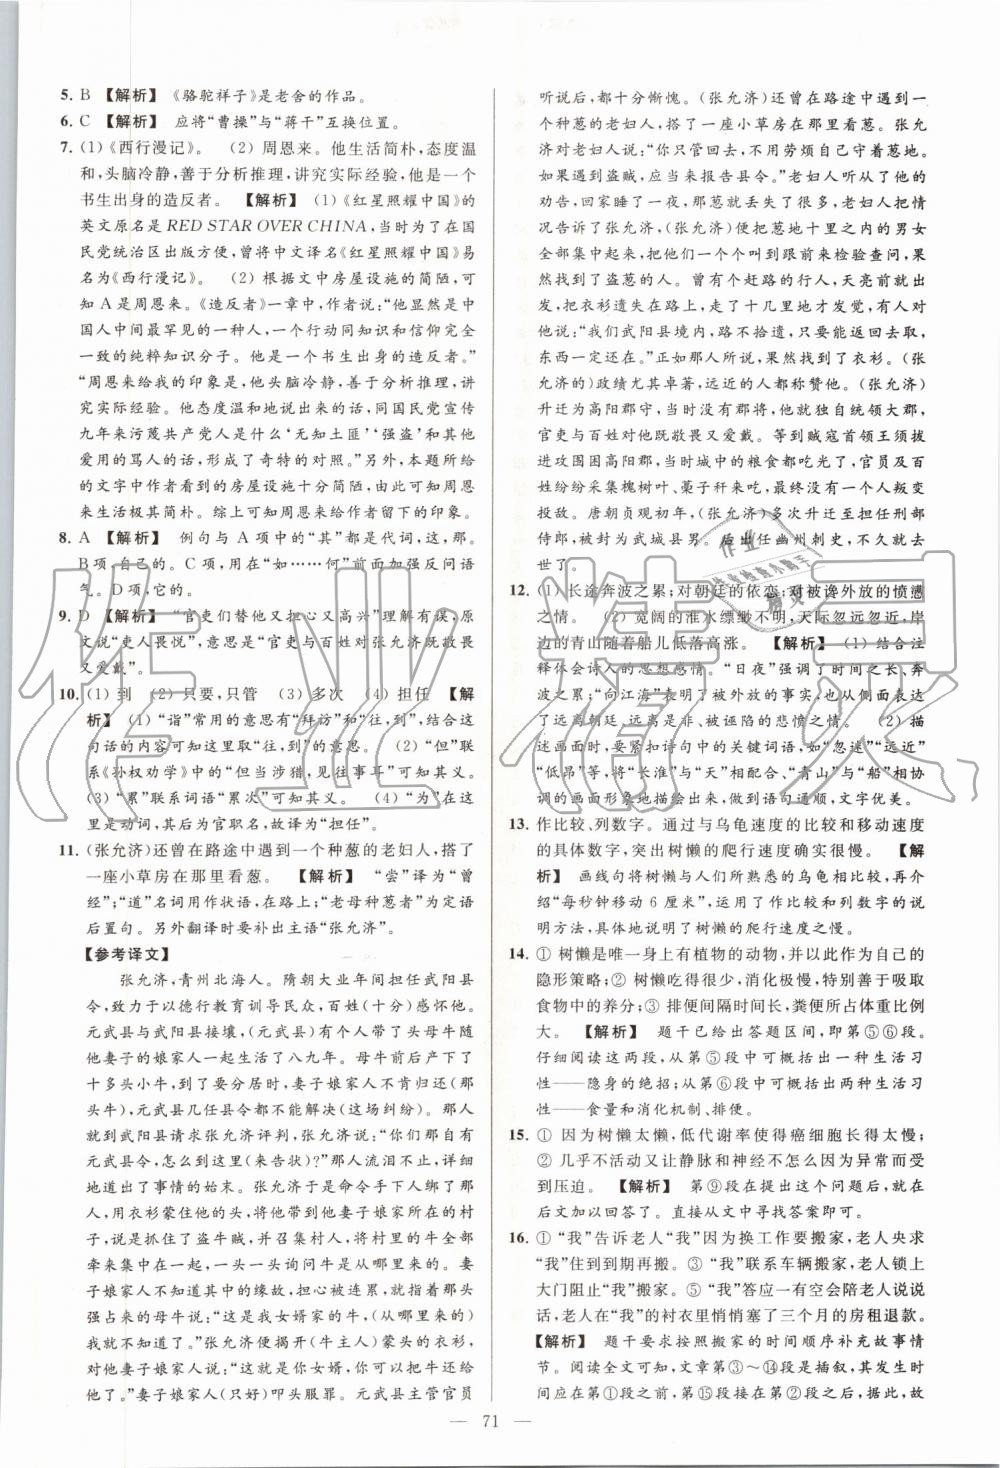 5. B 【解析】 《骆驼祥子》是老舍的作品。
6. C 【解析】 应将“曹操”与“蒋干”互换位置。
7. (1)《西行漫记》。 (2) 周恩来。他生活简朴,态度温
和,头脑冷静,善于分析推理,讲究实际经验,他是一个
书生出身的造反者。 【解析】 (1)《红星照耀中国》的
英文原名是RED STAR OVER CHINA,当时为了在国
民党统治区出版方便,曾将中文译名《红星照耀中国》易
名为《西行漫记》。 (2) 根据文中房屋设施的简陋,可
知A是周恩来。《造反者》一章中,作者说:“他显然是中
国人中间最罕见的一种人,一个行动同知识和信仰完全
一致的纯粹知识分子。他是一个书生出身的造反者。”
“周恩来给我的印象是,他头脑冷静,善于分析推理,讲
究实际经验。他态度温和地说出来的话,同国民党宣传
九年来污蔑共产党人是什么‘无知土匪’‘强盗’和其他
爱用的骂人的话,形成了奇特的对照。”另外,本题所给
的文字中作者看到的房屋设施十分简陋,由此可知周恩
来生活极其简朴。综上可知周恩来给作者留下的印象。
8. A 【解析】 例句与A项中的“其”都是代词,这,那。
B项,自己的。C项,用在“如……何”中起舒缓语
气。D项,它的。
9. D 【解析】 “官吏们替他又担心又高兴”理解有误,原
文说“吏人畏悦”,意思是“官吏与百姓对张允济既敬畏
又爱戴”。
10. (1) 到 (2) 只要,只管 (3) 多次 (4) 担任 【解
析】 (1) “诣”常用的意思有“拜访”和“往,到”,结合这
句话的内容可知取“往,到”的意思。 (2) “但”联
系《孙权劝学》中的“但当涉猎,见往事耳”可知其义。
(3) “累”联系词语“累次”可知其义。 (4) “为”在这
里是动词,其后为官职名,故译为“担任”。
11. (张允济)还曾在路途中遇到一个种葱的老妇人,搭了
一座小草房在那里看葱。 【解析】 “尝”译为“曾
经”;“道”名词用作状语,在路上;“老母种葱者”为定语
后置句。另外翻译时要补出主语“张允济”。
【参考译文】
张允济,青州北海人。隋朝大业年间担任武阳县
令,致力于以德行教育训导民众,百姓(十分)感怀他。
元武县与武阳县接壤,(元武县)有个人带了头母牛随
他妻子的娘家人一起生活了八九年。母牛前后产下了
十多头小牛,到了要分居时,妻子娘家人不肯归还(那
头牛),元武县几任县令都不能解决(这场纠纷)。那人
就到武阳县请求张允济评判,张允济说:“你们那自有
元武县县令,为什么到这里(来告状)?”那人流泪不止,详细
地道出了事情的始末。张允济于是命令手下人绑了那
人,用衣衫蒙住他的头,将他带到他妻子娘家所在的村
子,说是抓住了盗牛贼,并召集村人,让他们将村里的牛全部
牵来集中在一起,一头一头询问牛的来历。妻子娘家
人不知道处理此事的缘故,担心被连累,就指着那头
强占来的母牛说:“这是我女婿家的牛,(其他的)我就
不知道从哪里来了。”张允济就掀开(牛主人)蒙头的衣衫,
对他妻子娘家人说:“这就是你女婿,可以把牛还给
他了。”妻子娘家人(只好)叩头服罪。元武县主管官员
听说后,都十分惭愧。(张允济)还曾在路途中遇到一
个种葱的老妇人,搭了一座小草房在那里看葱。张允
济对老妇人说:“你只管回去,不用劳烦自己守着葱地。
如果遇到盗贼,应当来报告县令。”老妇人听从了他的
劝告,回家睡了一夜,那葱就丢失了大半。老妇人把情
况告诉了张允济,(张允济)便把葱地十里之内的男女
全部集中起来,(张允济)命令他们一个个到跟前来检验查问,果
然找到了盗葱的人。曾有个赶路的行人,天亮前就出
发,把衣衫遗失在路上,走了十几里地才发觉,有人对
他说:“我们武阳县境内,路不拾遗,只要能返回去取,
东西一定还在。”正如那人所说,果然找到了衣衫。(张
允济的)政绩尤其卓著,远近的人都称赞他。(张允济)
升迁为高阳郡守,当时郡里没有郡将,他就独自统领大郡,
官吏与百姓对他既敬畏又爱戴。等到贼寇首领王须拔
进攻围困高阳郡,当时城中的粮食都吃光了,官员及百
姓纷纷采集槐树叶、藁子秆来吃,最终没有一个人叛变
投敌。唐朝贞观初年,(张允济)多次升迁后担任刑部
侍郎,被封为武城县男。后出任幽州刺史,不久离开人
世了。
12. (1) 长途奔波之累;对朝廷的依恋;对被谗外放的愤懑
之情。 (2) 宽阔的淮水缥缈不明,天际忽远忽近,岸
边的青山随着船儿低落高涨。 【解析】 (1) 结合注
释体会诗人的思想感情。“日夜”强调了时间之长、奔
波之累;“向江海”表明了被外放的事实,也从侧面表达
了远离朝廷、远离是非、被诬陷的悲愤之情。 (2) 描
述画面时,要紧扣诗句中的关键词语,如“忽迷”“远近”
“低昂”等,将“长淮”与“天”相配合、“青山”与“船”相协
调的画面形象地描绘出来,做到语句通顺,文字优美。
13. 作比较、列数字。通过与乌龟速度的比较和移动速度
的具体数字,突出树懒的爬行速度确实很慢。 【解
析】 画线句将树懒与人们所熟悉的乌龟相比较,再介
绍“每秒钟移动6厘米”,运用了作比较和列数字的说
明方法,说明了树懒的爬行速度之慢。
14. ① 树懒是唯一身上有植物的动物,并以此作为自己的
隐形策略;② 树懒吃得很少,消化极慢,特别善于吸取
食物中的养分;③ 排便间隔时间长,粪便所占体重比例
大。 【解析】 题干已给出答题区间,即第⑤⑥段。
仔细阅读这两段,从第⑤段中可概括出一种生活习
性——隐身的绝招;从第⑥段中可概括出两种生活习
性——食量和消化机制、排便。
15. ① 因为树懒太懒,低代谢率使得癌细胞长得太慢;
② 几乎不活动又让静脉和神经不怎么因为异常而受
到压迫。 【解析】 第⑨段在提出这个问题后,就在
后文加以回答了。直接从文中寻找答案即可。
16. ① “我”告诉老人“我”因为换工作要搬家,老人央求
“我”住到到期再搬。③ “我”联系车辆搬家,老人锁上
大门阻止“我”搬家。⑤ “我”答应一有空会陪老人说说
话,老人在“我”的衬衣里悄悄塞了三个月的房租退款。
【解析】 题干要求按照搬家的时间顺序补充故事情
节。阅读全文可知,文章第③～⑭段是插叙,其发生时
间应在第①段之前,第⑮段接在第②段之后,据此,故
— 71 —
作业精灵